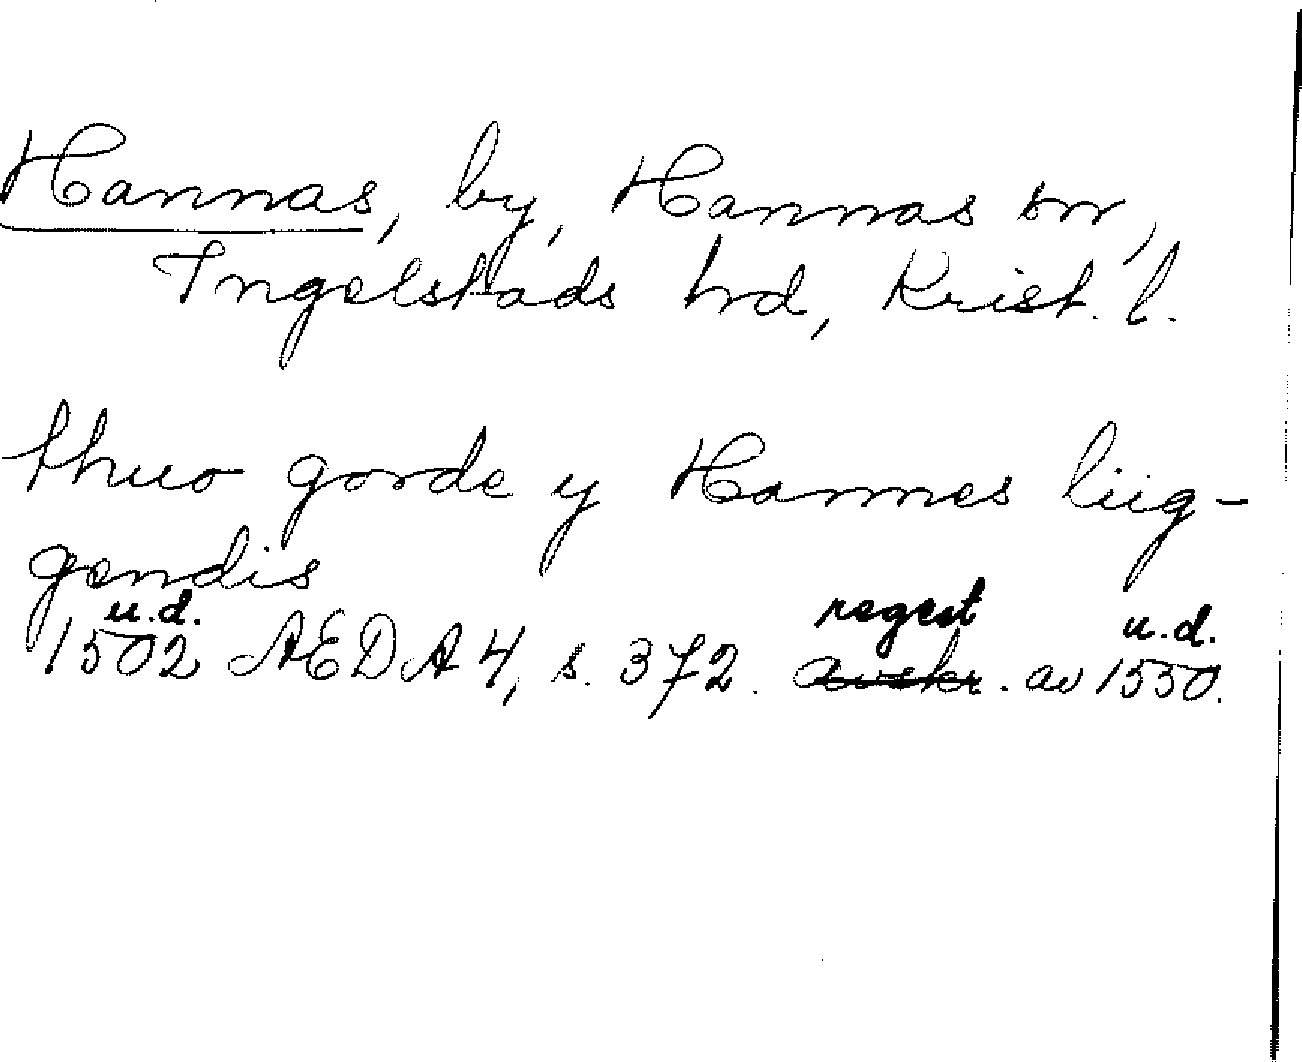 Hannas, by, Hannas sn,
Ingelstads hrd, Krist. l.
thuo gorde y Hannes liig-
gendis
u.d. regest u.d.
1502 AEDA 4, s. 372. avskr. av 1550.